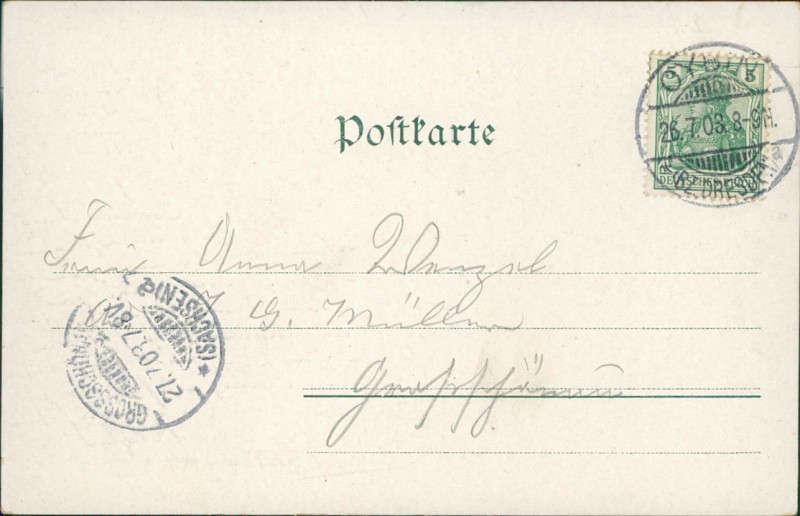 5 5
26.7.03.8-9N.
(BZ. DRESDEN)
DEUTSCHES REICH
Postkarte
Frau Anna Wenzel
J. G. Müller
Großschönau
GROSSSCHÖNAU
27.7.03.7-8V.
*(SACHSEN)*a